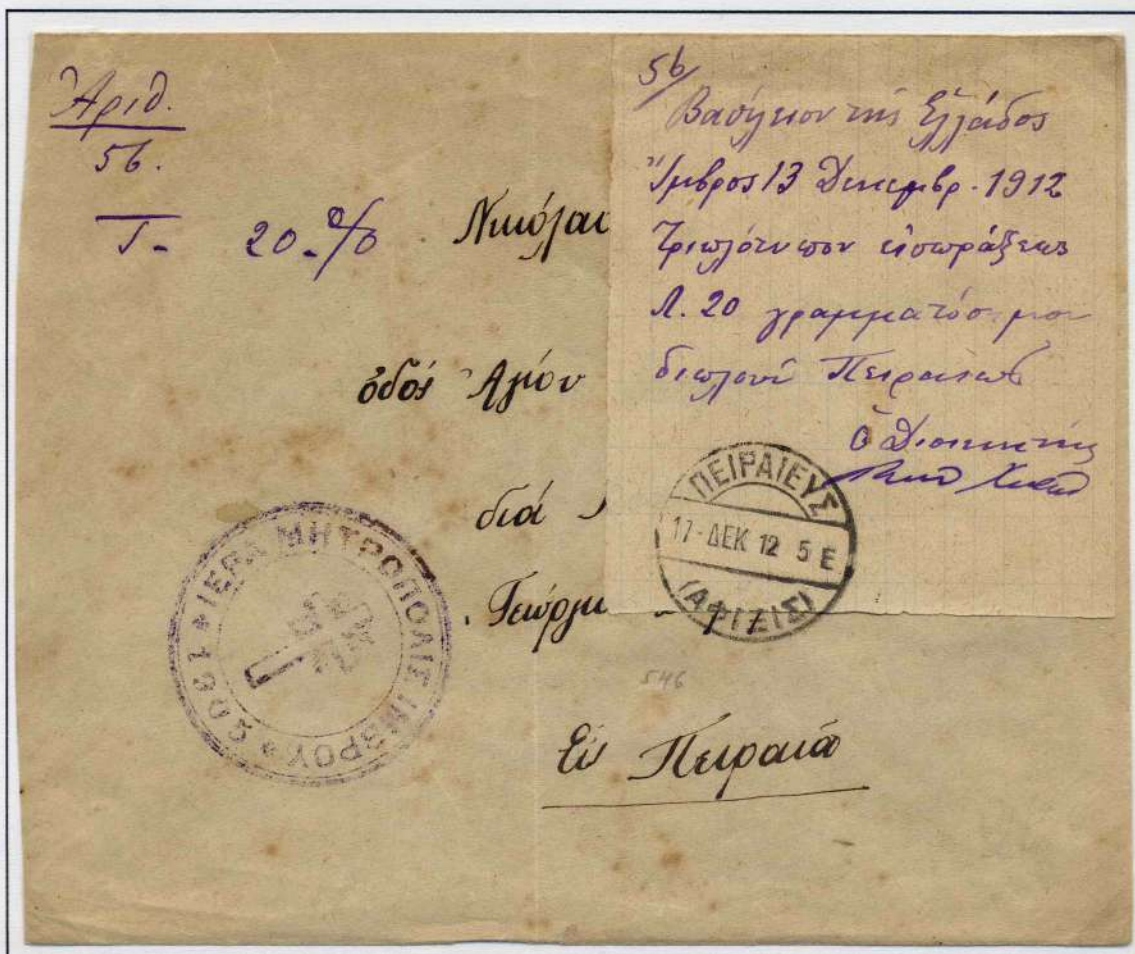 Ἀριθ.
56.
Τ- 20.%
Νικόλαο
ὁδός Ἁγίου
διά
Γεώργι
Εἰς Πειραιά
546
56/
Βασίλειον τῆς Ἑλλάδος
Ἴμβρος 13 Δεκεμβρ. 1912
Τριπλότυπον εἰσπράξεως
Λ. 20 γραμματόσημον
διπλοῦν Πειραιῶς
Ὁ Διοικητής
ΠΕΙΡΑΙΕΥΣ
17-ΔΕΚ 12 5 Ε
(ΑΦΙΞΙΣ)
ΙΕΡΑ ΜΗΤΡΟΠΟΛΙΣ ΙΜΒΡΟΥ